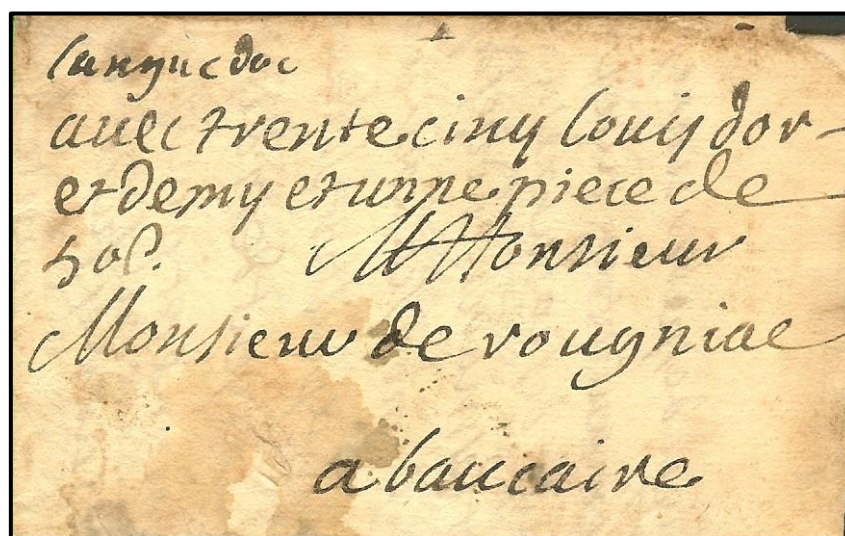 languedoc
avec trente cinq louis d'or
et demy et unne piece de
50s. Monsieur
Monsieur de rougniac
a baucaire